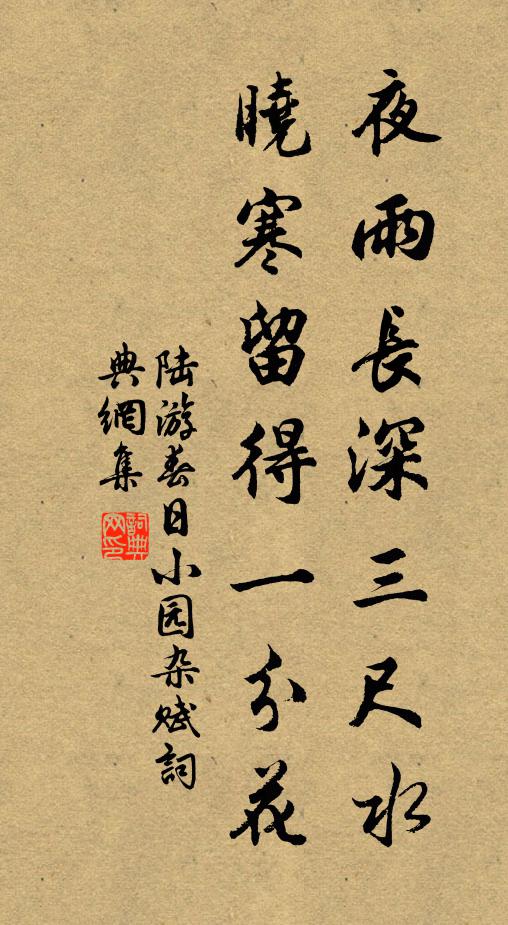 夜雨長深三尺水
曉寒留得一分花
陆游春日小园杂赋詞
典網集
詞典
网印